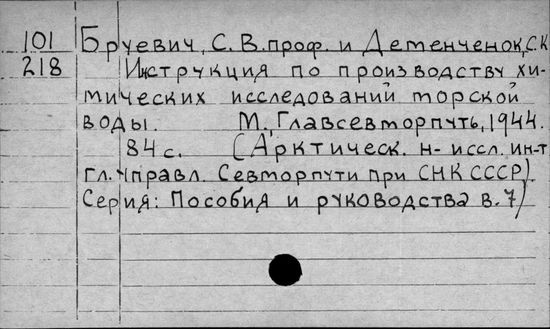 101 Бруевич, С. В. проф. и Детенченок, С.К
218 Инструкция по производству хи-
мических исследований торской
воды. М., Главсевторпуть, 1944.
84 с. (Арктическ. н- иссл. ин-т
гл. управл. Севторпути при СНК СССР).
Серия: Пособия и руководства в. 7)